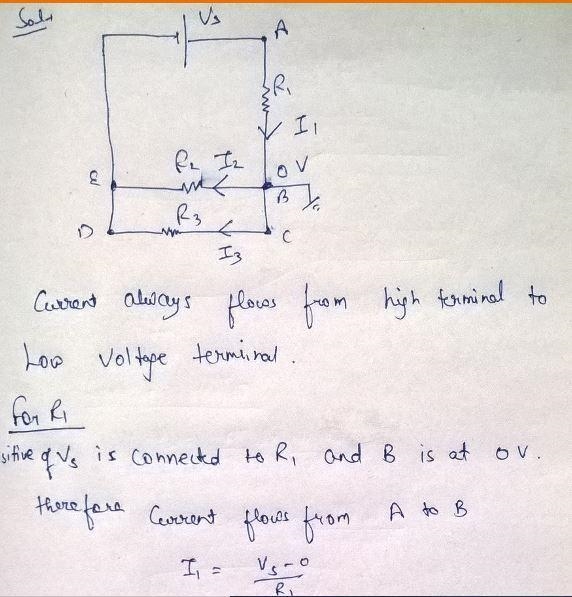 Sol:
Vs
A
R1
I1
R2 I2
0V
E
B
R3
D
C
I3
Current always flows from high terminal to
Low voltage terminal.
for R1
sitive of Vs is connected to R1 and B is at 0V.
therefore Current flows from A to B
I1 = Vs-0
R1